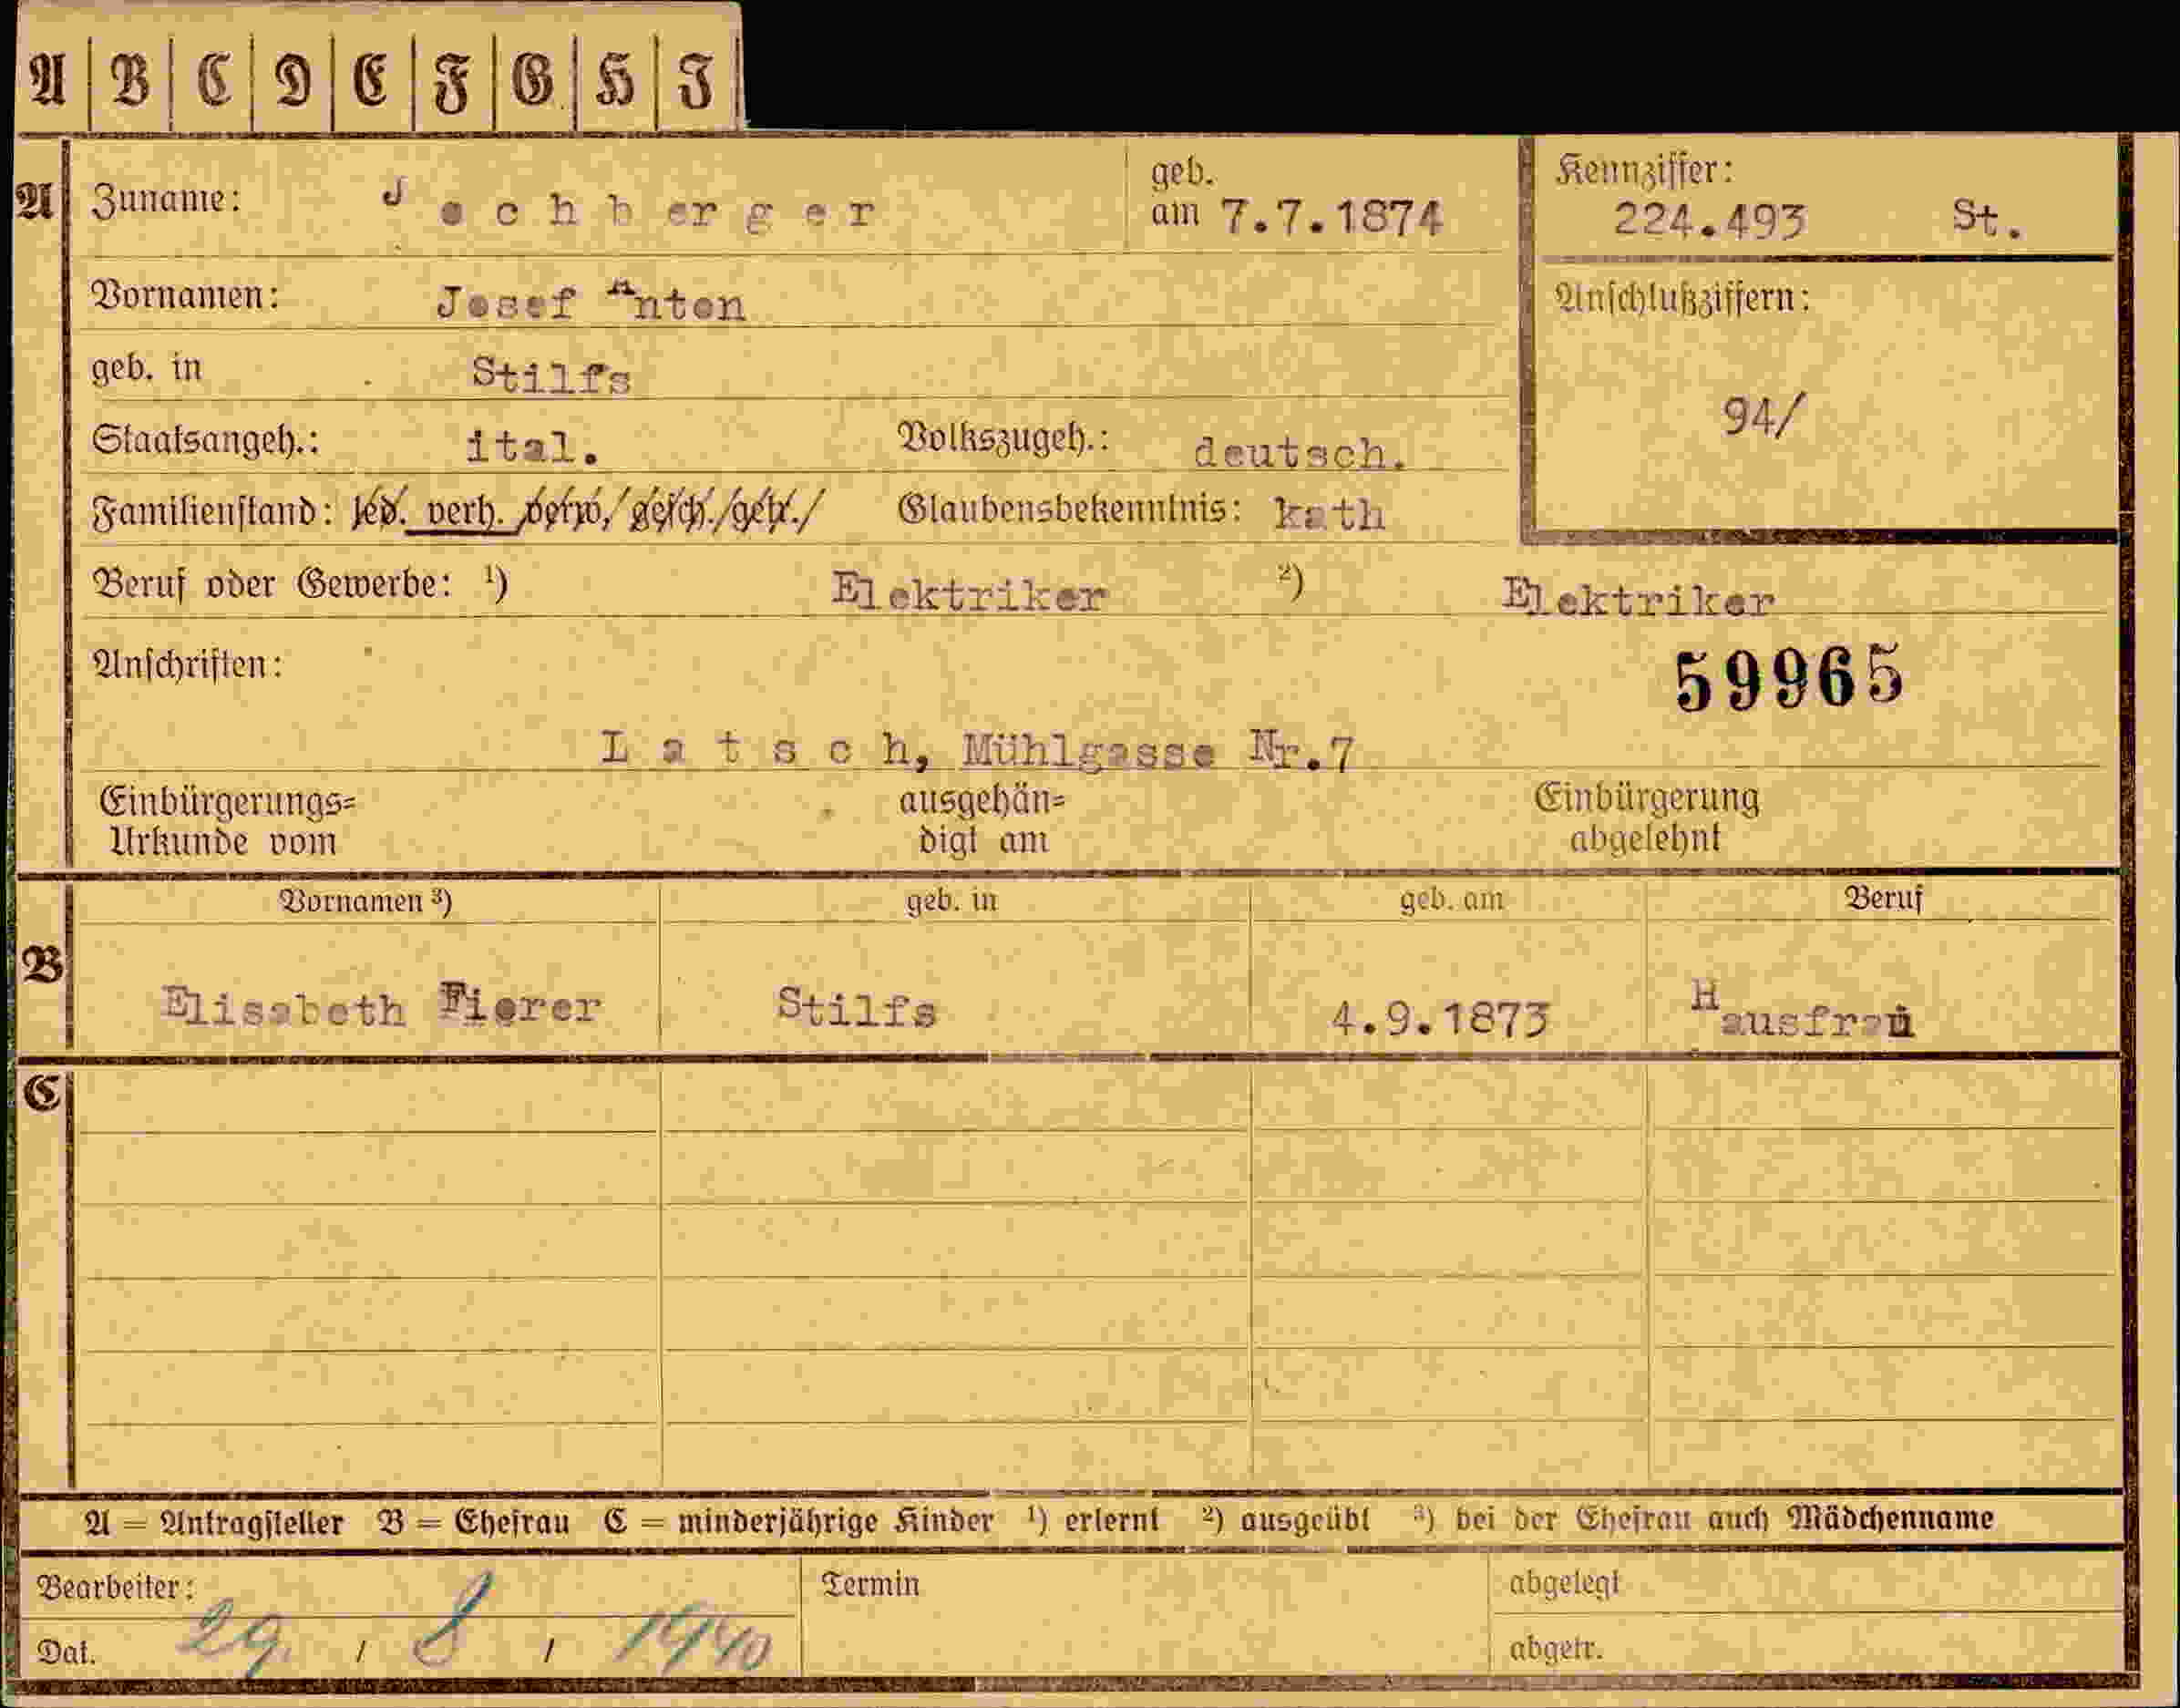 A B C D E F G H J
A Zuname: Jochberger geb. am 7.7.1874 Kennziffer: 224.493 St.
Vornamen: Josef Anton Anschlußziffern:
geb. in Stilfs
94/
Staatsangeh.: ital. Volkszugeh.: deutsch.
Familienstand: led. verh. verw. gesch. getr. Glaubensbekenntnis: kath
Beruf oder Gewerbe: 1) Elektriker 2) Elektriker
Anschriften: 59965
Latsch, Mühlgasse Nr.7
Einbürgerungs= ausgehän= Einbürgerung
Urkunde vom digt am abgelehnt
Vornamen 3) geb. in geb. am Beruf
B Elisabeth Pierer Stilfs 4.9.1873 Hausfrau
C
A = Antragsteller B = Ehefrau C = minderjährige Kinder 1) erlernt 2) ausgeübt 3) bei der Ehefrau auch Mädchenname
Bearbeiter: Termin abgelegt
Dat. 29. / 8 / 1940 abgetr.